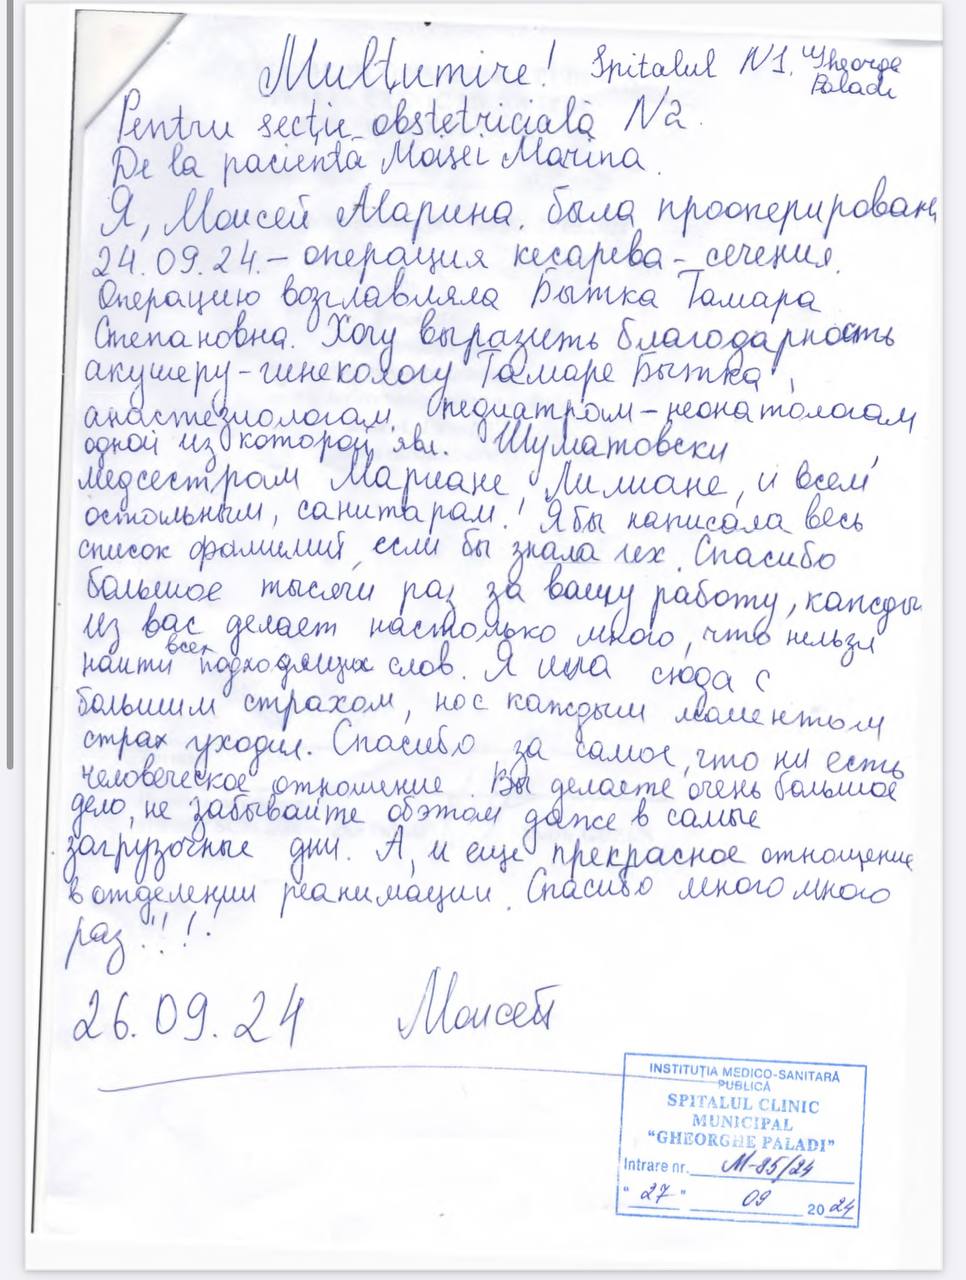 Mulțumire! Spitalul N1. "Gheorge
Paladi
Pentru secție obstetricială N2.
De la pacienta Moisei Marina.
Я, Моисей Марина. была прооперирован
24.09.24.– операция кесарева – сечения.
Операцию возглавляла Бытка Тамара
Степановна. Хочу выразить благодарность
акушеру-гинекологу Тамаре Бытка,
анастезиологам, педиатром – неонатологам
одной из которой явл. Шуматовски,
медсестрам Мариане, Лилиане, и всем
остольным, санитарам! Я бы написала весь
список фамилий, если бы знала их. Спасибо
большое тысячи раз за вашу работу, кажды
из вас делает настолько много, что нельзя
найти всех подходящих слов. Я шла сюда с
большим страхом, но с каждым моментом
страх уходил. Спасибо за самое, что ни есть
человеческое отношение. Вы делаете очень большое
дело, не забывайте обэтом даже в самые
загрузочные дни. А, и еще прекрасное отношение
в отделении реанимации. Спасибо много много
раз!!!!
26.09.24 Моисей
INSTITUȚIA MEDICO-SANITARĂ
PUBLICĂ
SPITALUL CLINIC
MUNICIPAL
"GHEORGHE PALADI"
Intrare nr. M-85/24
"27" 09 2024